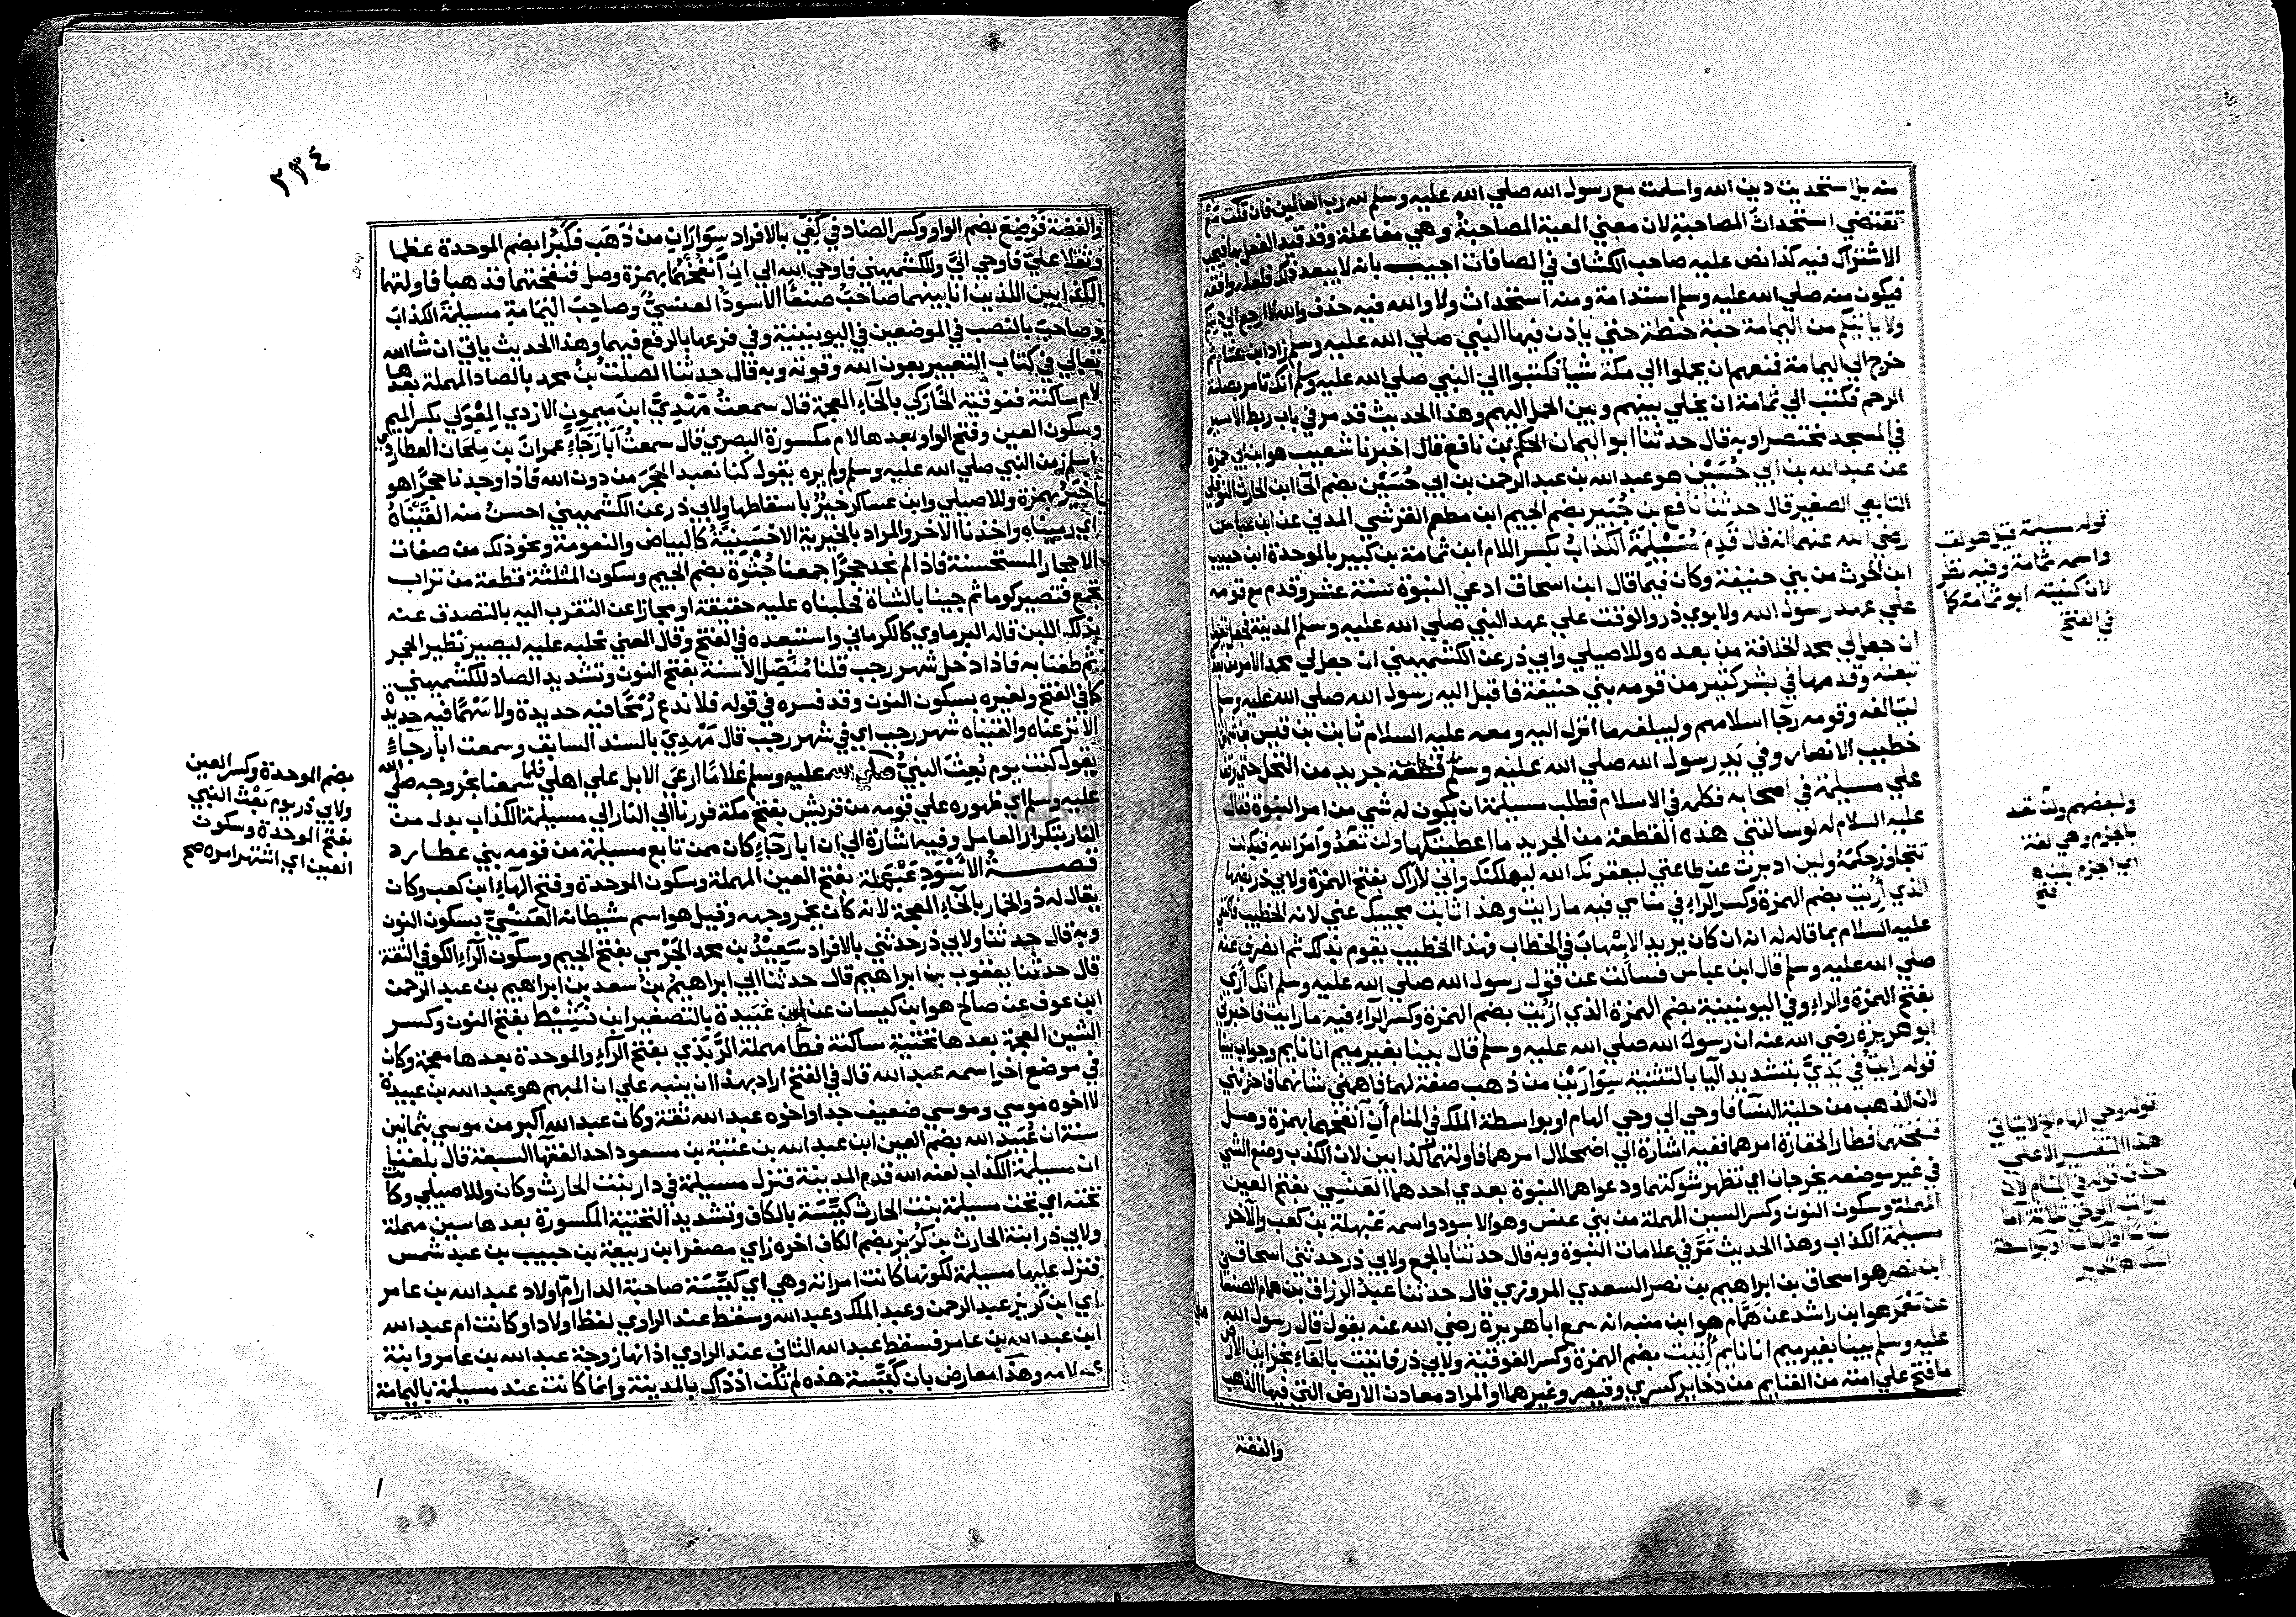 منه بل استحديت دين الله واسلمت مع رسول الله صلي الله عليه وسلم لله رب العالمين فان قلت مع
تقتضي استحداث المصاحبة لان معني المعية المصاحبة وهي مفاعلة وقد قيد الفعل بها فيجب
الاشتراك فيه كذا نص عليه صاحب الكشاف في الصافات اجيب بانه لا يبعد ذلك فلعله وافقه
فيكون منه صلي الله عليه وسلم استدامة ومنه استحداث ولا والله فيه حذف والله لا ارجع الي دينكم
ولا ياتيكم من اليمامة حبة حنطة حتي ياذن فيها النبي صلي الله عليه وسلم زاد ابن هشام ثم
خرج الي اليمامة فمنعهم ان يحملوا الي مكة شيأ فكتبوا الي النبي صلي الله عليه وسلم انك تامر بصلة
الرحم فكتب الي ثمامة ان يخلي بينهم وبين الحمل اليهم وهذا الحديث قد مر في باب ربط الاسير
في المسجد مختصرا وبه قال حدثنا ابو اليمان الحكم بن نافع قال اخبرنا شعيب هو ابن ابي حمزة
عن عبد الله بن ابي حسين هو عبد الله بن عبد الرحمن بن ابي حسين بضم الحا ابن الحارث النوفلي
التابعي الصغير قال حدثنا نافع بن جُبَير بضم الجيم ابن مطعم القرشي المدني عن ابن عباس
رضي الله عنهما انه قال قَدِمَ مُسَيْلِمَة الكذاب بكسر اللام ابن ثمامة بن كبير بالموحدة ابن حبيب
ابن الحرث من بني حنيفة وكان فيما قال ابن اسحاق ادعي النبوة سنة عشر وقدم مع قومه
علي عهد رسول الله ولابوي ذر والوقت علي عهد النبي صلي الله عليه وسلم المدينة فجعل يقول
ان جعل لي محمد الخلافة من بعده وللاصيلي وابي ذر عن الكشميهني ان جعل لي محمد الامر من بعده
تبعته وقدمها في بشر كثير من قومه بني حنيفة فاقبل اليه رسول الله صلي الله عليه وسلم
ليتالفه وقومه رجا اسلامهم وليبلغه ما انزل اليه ومعه عليه السلام ثابت بن قيس بن شماس
خطيب الانصار وفي يد رسول الله صلي الله عليه وسلم قطعة جريد من النخل حتي وقف
علي مسيلمة في اصحابه فكلمه في الاسلام فطلب مسيلمة ان يكون له شي من امر النبوة فقال
عليه السلام له لو سالتني هذه القطعة من الجريد ما اعطيتكها ولن تعدُ وامر الله فيك لن
تتجاوز حكمه ولين ادبرت عن طاعتي ليعقرنك الله ليهلكنك واني لاراك بفتح الهمزة ولابي ذر بضمها
الذي أُرِيت بضم الهمزة وكسر الراء في منامي فيه ما رايت وهذا ثابت يجيبك عني لانه الخطيب فاكتفي
عليه السلام بما قاله له ان ان كان يريد الاسهاب في الخطاب فهذا الخطيب يقوم بذلك ثم انصرف عنه
صلي الله عليه وسلم قال ابن عباس فسألت عن قول رسول الله صلي الله عليه وسلم انك أُري
بفتح الهمزة والراء وفي اليونينية بضم الهمزة الذي أُرُيت بضم الهمزة وكسر الراء فيه ما رايت فاخبرني
ابو هريرة رضي الله عنه ان رسول الله صلي الله عليه وسلم قال بينا بغير ميم انا نايم وجواب بينا
قوله رايت في يديَّ بتشديد اليا بالتثنية سوارين من ذهب صفة لهما فاهمني شانهما فاحزنني
لان الذهب من حلية النساء فاوحي الي وحي الهام او بواسطة الملك في المنام أن انفخهما بهمزة وصل
فنفختهما فطارا لحقارة امرهما ففيه اشارة الي اضمحلال امرهما فاولتهما كذابين لان الكذب وضع الشي
في غير موضعه يخرجان اي تظهر شوكتهما ودعواهما النبوة بعدي احدهما العنسي بفتح العين
المهملة وسكون النون وكسر السين المهملة من بني عنس وهو الاسود واسمه عبهلة بن كعب والآخر
مسيلمة الكذاب وهذا الحديث مر في علامات النبوة وبه قال حدثنا بالجمع ولابي ذر حدثني اسحاق
ابن نصر هو اسحاق بن ابراهيم بن نصر السعدي المروزي قال حدثنا عبد الرزاق بن همام الصنعاني
عن معمر هو ابن راشد عن همام هو ابن منبه انه سمع ابا هريرة رضي الله عنه يقول قال رسول الله صلي الله
عليه وسلم بينا بغير ميم انا نايم أُتيت بضم الهمزة وكسر الفوقية ولابي ذر فاتيت بالفاء بخزاين الارض
ما فتح علي امته من الغنايم من ذخاير كسري وقيصر وغيرهما او المراد معادن الارض التي فيها الذهب
والفضة
قوله مسيلمة قيل هو لقب
واسمه ثمامة وفيه نظر
لان كنيته ابو ثمامة كما
في الفتح
ولبعضهم ولن تعد
بالجزم وهي لغة
اي الجزم بلن ه
فتح
قوله وحي الهام لا يتاتي
هذا التفسير الا علي
حذف قوله في المنام لان
مراتب الوحي ثلاثة اما
٢٣٤
والفضة فَوُضِعَ بضم الواو وكسر الضاد في كَفِّي بالافراد سوارانِ من ذهب فكَبُرا بضم الموحدة عظما
وثقلا عليَّ فاوحي اليَّ وللكشميهني فاوحي الله الي ان أنفُخْهُما بهمزة وصل فنفختهما فذهبا فاولتهما
الكذابين اللذين انا بينهما صاحبُ صنعا الاسود العنسيُّ وصاحبَ اليمامةِ مسيلمة الكذاب
وصاحب بالنصب في الموضعين في اليونينية وفي فرعها بالرفع فيهما وهذا الحديث ياتي ان شا الله
تعالي في كتاب التعبير بعون الله وقوته وبه قال حدثنا الصلت بن محمد بالصاد المهملة بعدها
لام ساكنة ففوقية الخاركي بالخاء المعجمة قال سمعت مَهْدِيَّ ابن ميمون الازدي المِعْوَلي بكسر الميم
وسكون العين وفتح الواو بعدها لام مكسورة البصري قال سمعت ابا رجاء عمران بن ملحان العطاردي
اسلم زمن النبي صلي الله عليه وسلم ولم يره يقول كنا نعبد الحجر من دون الله فاذا وجدنا حجرًا هو
اخيَرُ بهمزة وللاصيلي وابن عساكر خيرٌ باسقاطها ولابي ذر عن الكشميهني احسنُ منه القيناهُ
اي رميناه واخذنا الاخر والمراد بالخيرية الاحسنيَّةُ كالبياض والنعومة ونحو ذلك من صفات
الاحجار المستحسنة فاذا لم نجد حجرًا جمعنا جُثْوَة بضم الجيم وسكون المثلثة قطعة من تراب
تجمع فتصير كوما ثم جينا بالشاة فحلبناه عليه حقيقة او مجازا عن التقرب اليه بالتصدق عنه
بذلك اللبن قاله البرماوي كالكرماني واستبعده في الفتح وقال العيني نحلبه عليه ليصير نظير الحجر
ثم طفنا به فاذا دخل شهر رجب قلنا مُنَصِّل الاسنة بفتح النون وتشديد الصاد للكشميهني
كما في الفتح ولغيره بسكون النون وقد فسره في قوله فلا ندع رُمْحًا فيه حديدة ولا سَهْمًا فيه حديدة
الا نزعناه والقيناه شهر رجب اي في شهر رجب قال مَهْدِيّ بالسند السابق وسمعت ابا رجاء
يقول كنت يوم بُعِثَ النبيُّ صلي الله عليه وسلم غلامًا ارعي الابل علي اهلي فلما سمعنا بخروجه صلي الله
عليه وسلم اي ظهوره علي قومه من قريش بفتح مكة فررنا الي النار الي مسيلمة الكذاب بدل من
النار بتكرار العامل وفيه اشارة الي ان ابا رجاء كان ممن تابع مسيلمة من قومه بني عطارد
قصــــة الاَسْوَدِ عَبْهَلة بفتح العين المهملة وسكون الموحدة وفتح الهاء ابن كعب وكان
يقال له ذو الخمار بالخاء المعجمة لانه كان يخمر وجهه وقيل هو اسم شيطانه العَنْسِيِّ بسكون النون
وبه قال حدثنا ولابي ذر حدثني بالافراد سَعِيْدُ بن محمد الجَرْمي بفتح الجيم وسكون الراء الكوفي الثقة
قال حدثنا يعقوب بن ابراهيم قال حدثنا ابي ابراهيم بن سعد بن ابراهيم بن عبد الرحمن
ابن عوف عن صالح هو ابن كيسان عن ابن عُبَيدة بالتصغير ابن نَشِيْط بفتح النون وكسر
الشين المعجمة بعدها تحتية ساكنة فطا مهملة الرَّبَذي بفتح الراء والموحدة بعدها معجمة وكان
في موضع اخر اسمه عبد الله قال في الفتح اراد بهذا ان ينبه علي ان المبهم هو عبد الله بن عبيدة
لا اخوه موسي وموسي ضعيف جدا واخوه عبد الله ثقة وكان عبد الله اكبر من موسي بثمانين
سنة ان عُبَيد الله بضم العين ابن عبد الله بن عتبة بن مسعود احد الفقها السبعة قال بلغنا
ان مسيلمة الكذاب لعنه الله قدم المدينة فنزل مسيلمة في دار بنت الحارث وكان وللاصيلي وكانت
تحته اي تحت مسيلمة بنت الحارث كَيِّسَة بالكاف وتشديد التحتية المكسورة بعدها سين مهملة
ولابي ذر ابنة الحارث بن كُرَيز بضم الكاف اخره زاي مصغر ابن ربيعة بن حبيب بن عبد شمس
فنزل عليها مسيلمة لكونها كانت امراته وهي اي كَيِّسَة صاحبة الدار امّ اولاد عبد الله بن عامر
اي ابن كريز عبد الرحمن وعبد الملك وعبد الله وسقط عند الراوي لفظ اولاد او كانت ام عبد الله
ابن عبد الله بن عامر فسقط عبد الله الثاني عند الراوي اذ انها زوجة عبد الله بن عامر وابنة
عمه لا امه وهذا معارض بان كَيِّسة هذه لم تكن اذ ذاك بالمدينة وانما كانت عند مسيلمة باليمامة
بضم الموحدة وكسر العين
ولابي ذر يوم بَعْث النبي
بفتح الموحدة وسكون
العين اي اشتهر امره صح